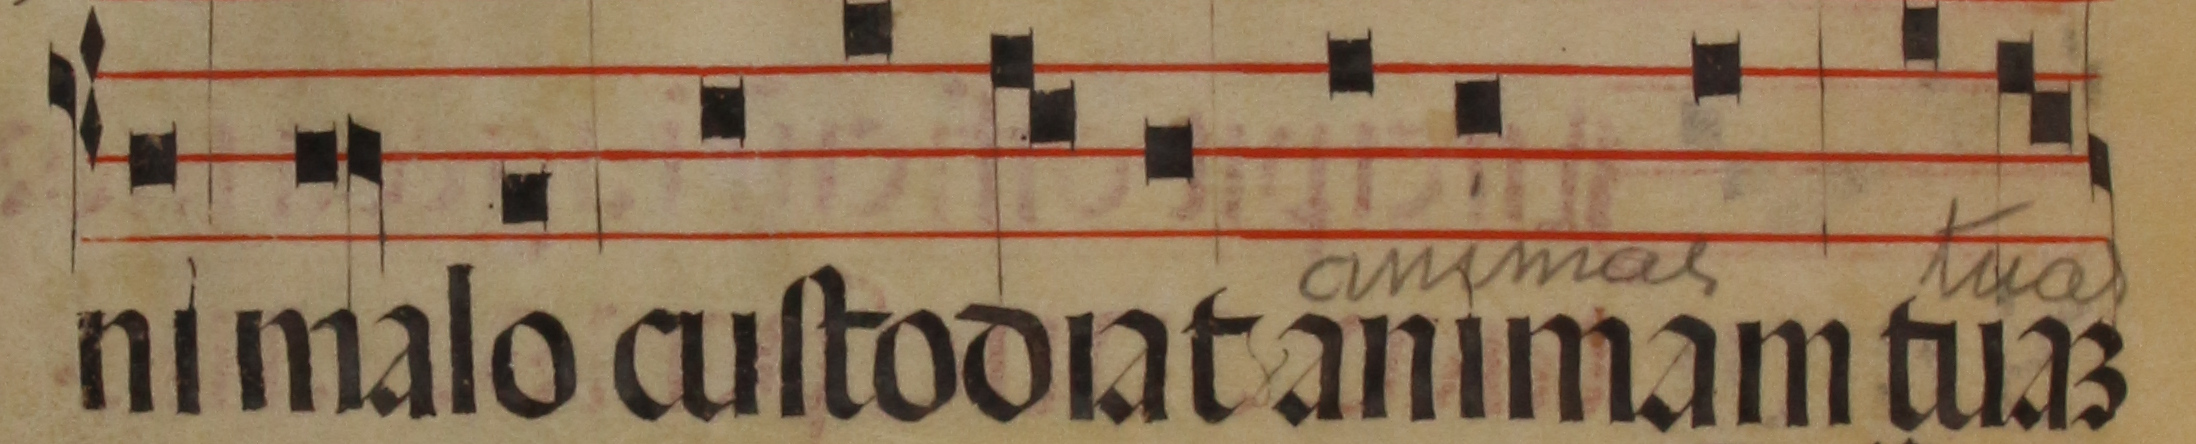 animas tuas
ni malo custodiat animam tuaʒ